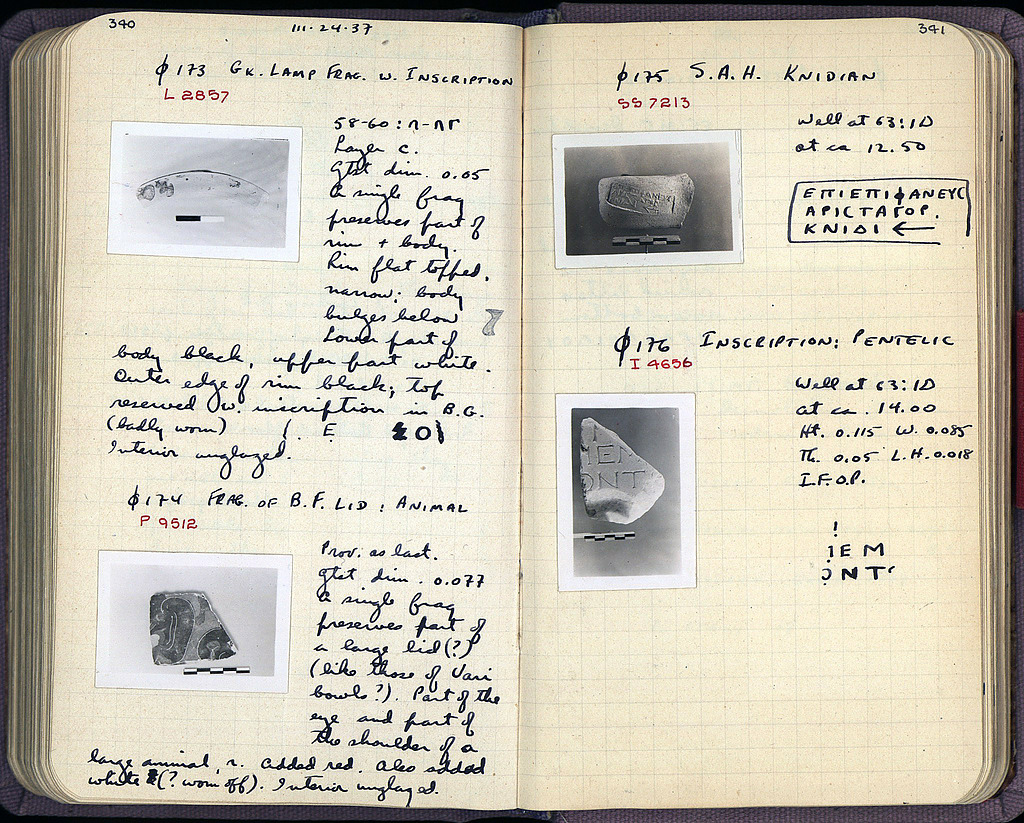 340
III·24·37
ϕ 173 GK. LAMP FRAG. W. INSCRIPTION
L 2857
58-60 : Π-ΠΓ
Layer C.
Gtst dim. 0.05
A single frag
preserves part of
rim + body.
Rim flat topped,
narrow; body
bulges below
7
Lower part of
body black, upper part white.
Outer edge of rim black; top
reserved w. inscription in B.G.
(badly worn)
Interior unglazed.
ϕ 174 FRAG. OF B.F. LID : ANIMAL
P 9512
Prov. as last.
Gtst dim. 0.077
A single frag
preserves part of
a large lid (?)
(like those of Vari
bowls ?). Part of the
eye and part of
the shoulder of a
large animal, r. Added red. Also added
white (? worn off). Interior unglazed.
341
ϕ 175 S.A.H. KNIDIAN
SS 7213
Well at 63:ΙΔ
at ca 12.50
ΕΠΙΕΠΙΦΑΝΕΥC
ΑΡΙCΤΑΓΟΡ.
ΚΝΙΔΙ ←
ϕ 176 INSCRIPTION: PENTELIC
I 4656
Well at 63:ΙΔ
at ca. 14.00
Ht. 0.115 W. 0.085
Th. 0.05 L.H. 0.018
I.F.O.P.
ΙΕΜ
ΟΝΤ